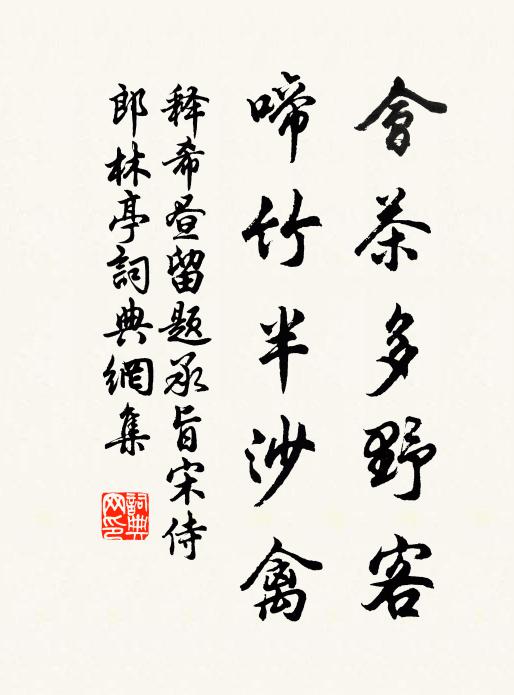 會茶多野客
啼竹半沙禽
釋希晝留題承旨宋侍
郎林亭詞典網集
詞典
网印